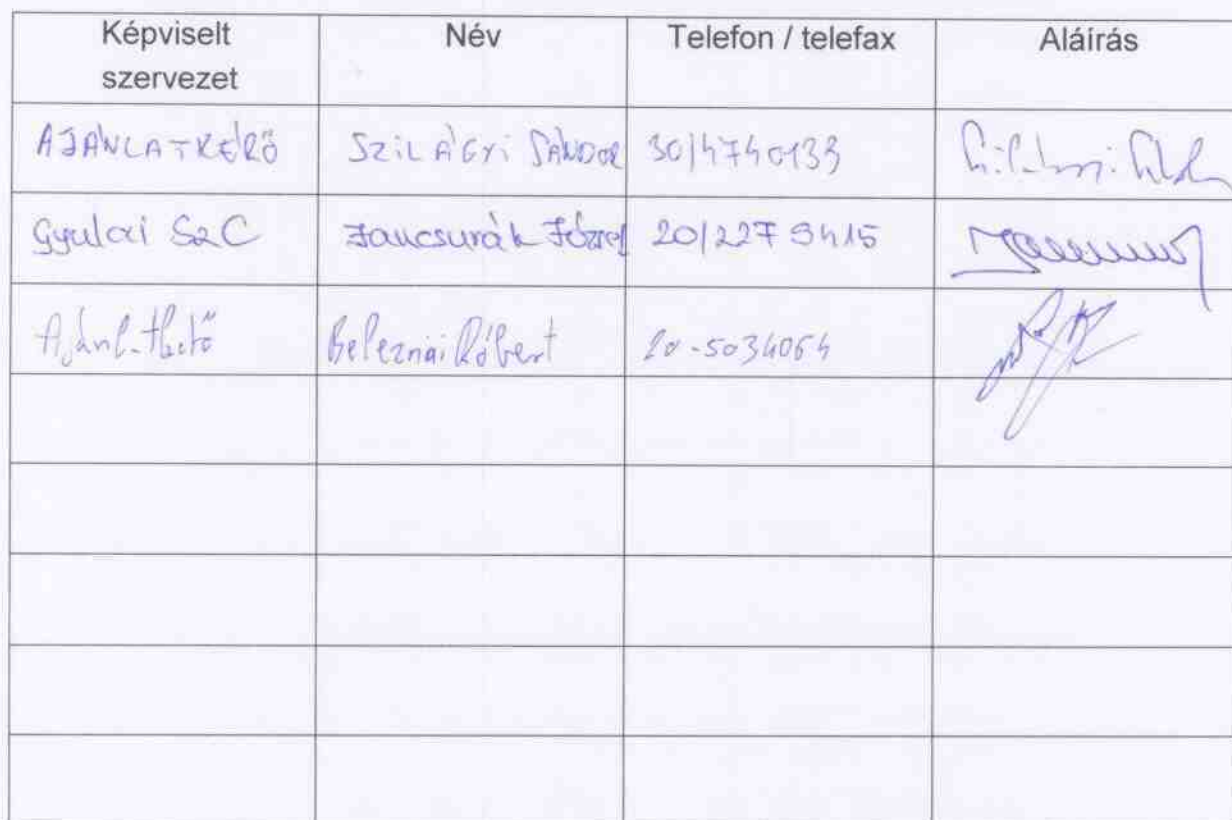 Képviselt szervezet Név Telefon / telefax Aláírás
AJÁNLATKÉRŐ SZILÁGYI SÁNDOR 30/4740133
Gyulai SzC Jancsurák József 20/227 9415
Beleznai Róbert 20-5034064